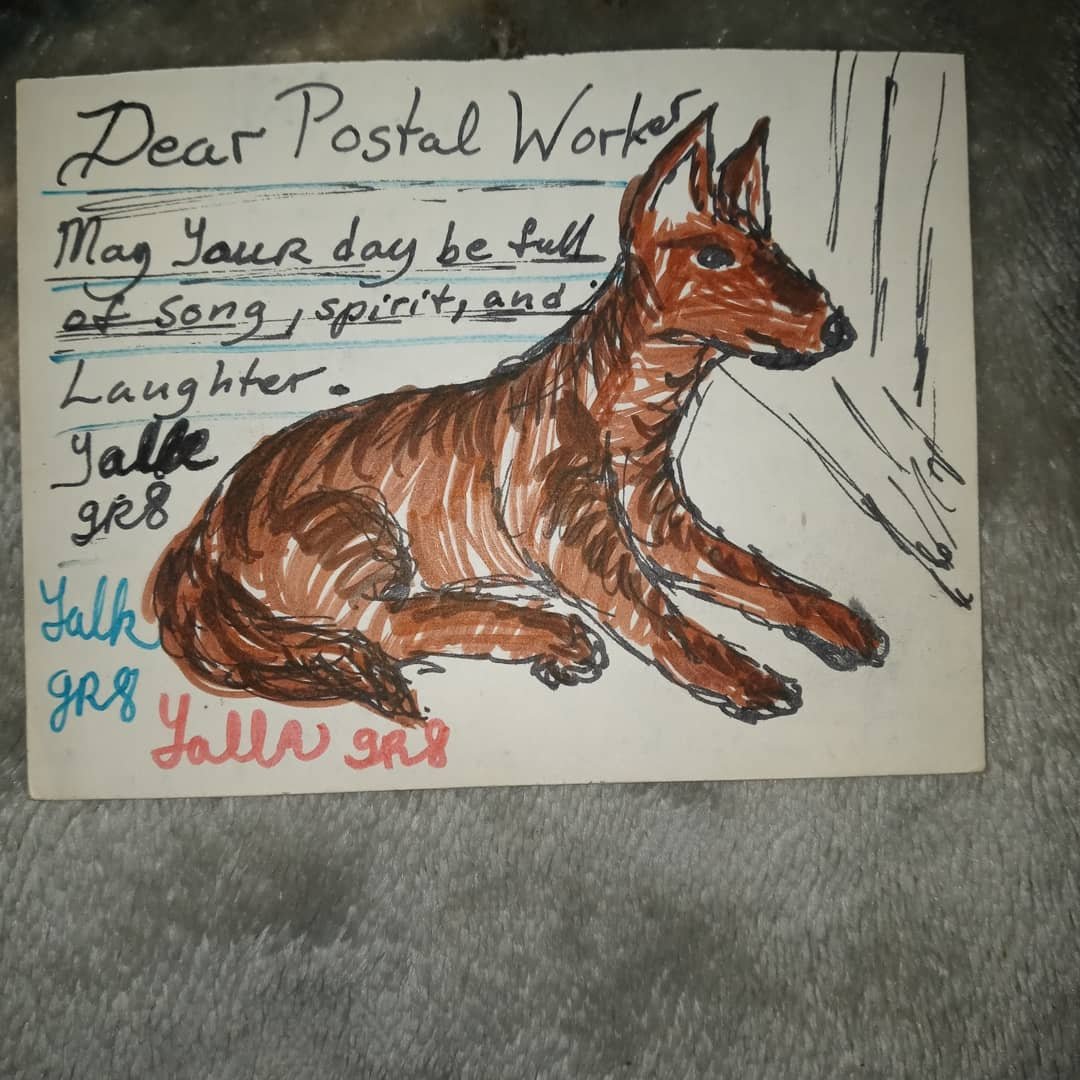 Dear Postal Worker
May Your day be full
of song, spirit, and
Laughter.
gR8
gR8
gR8